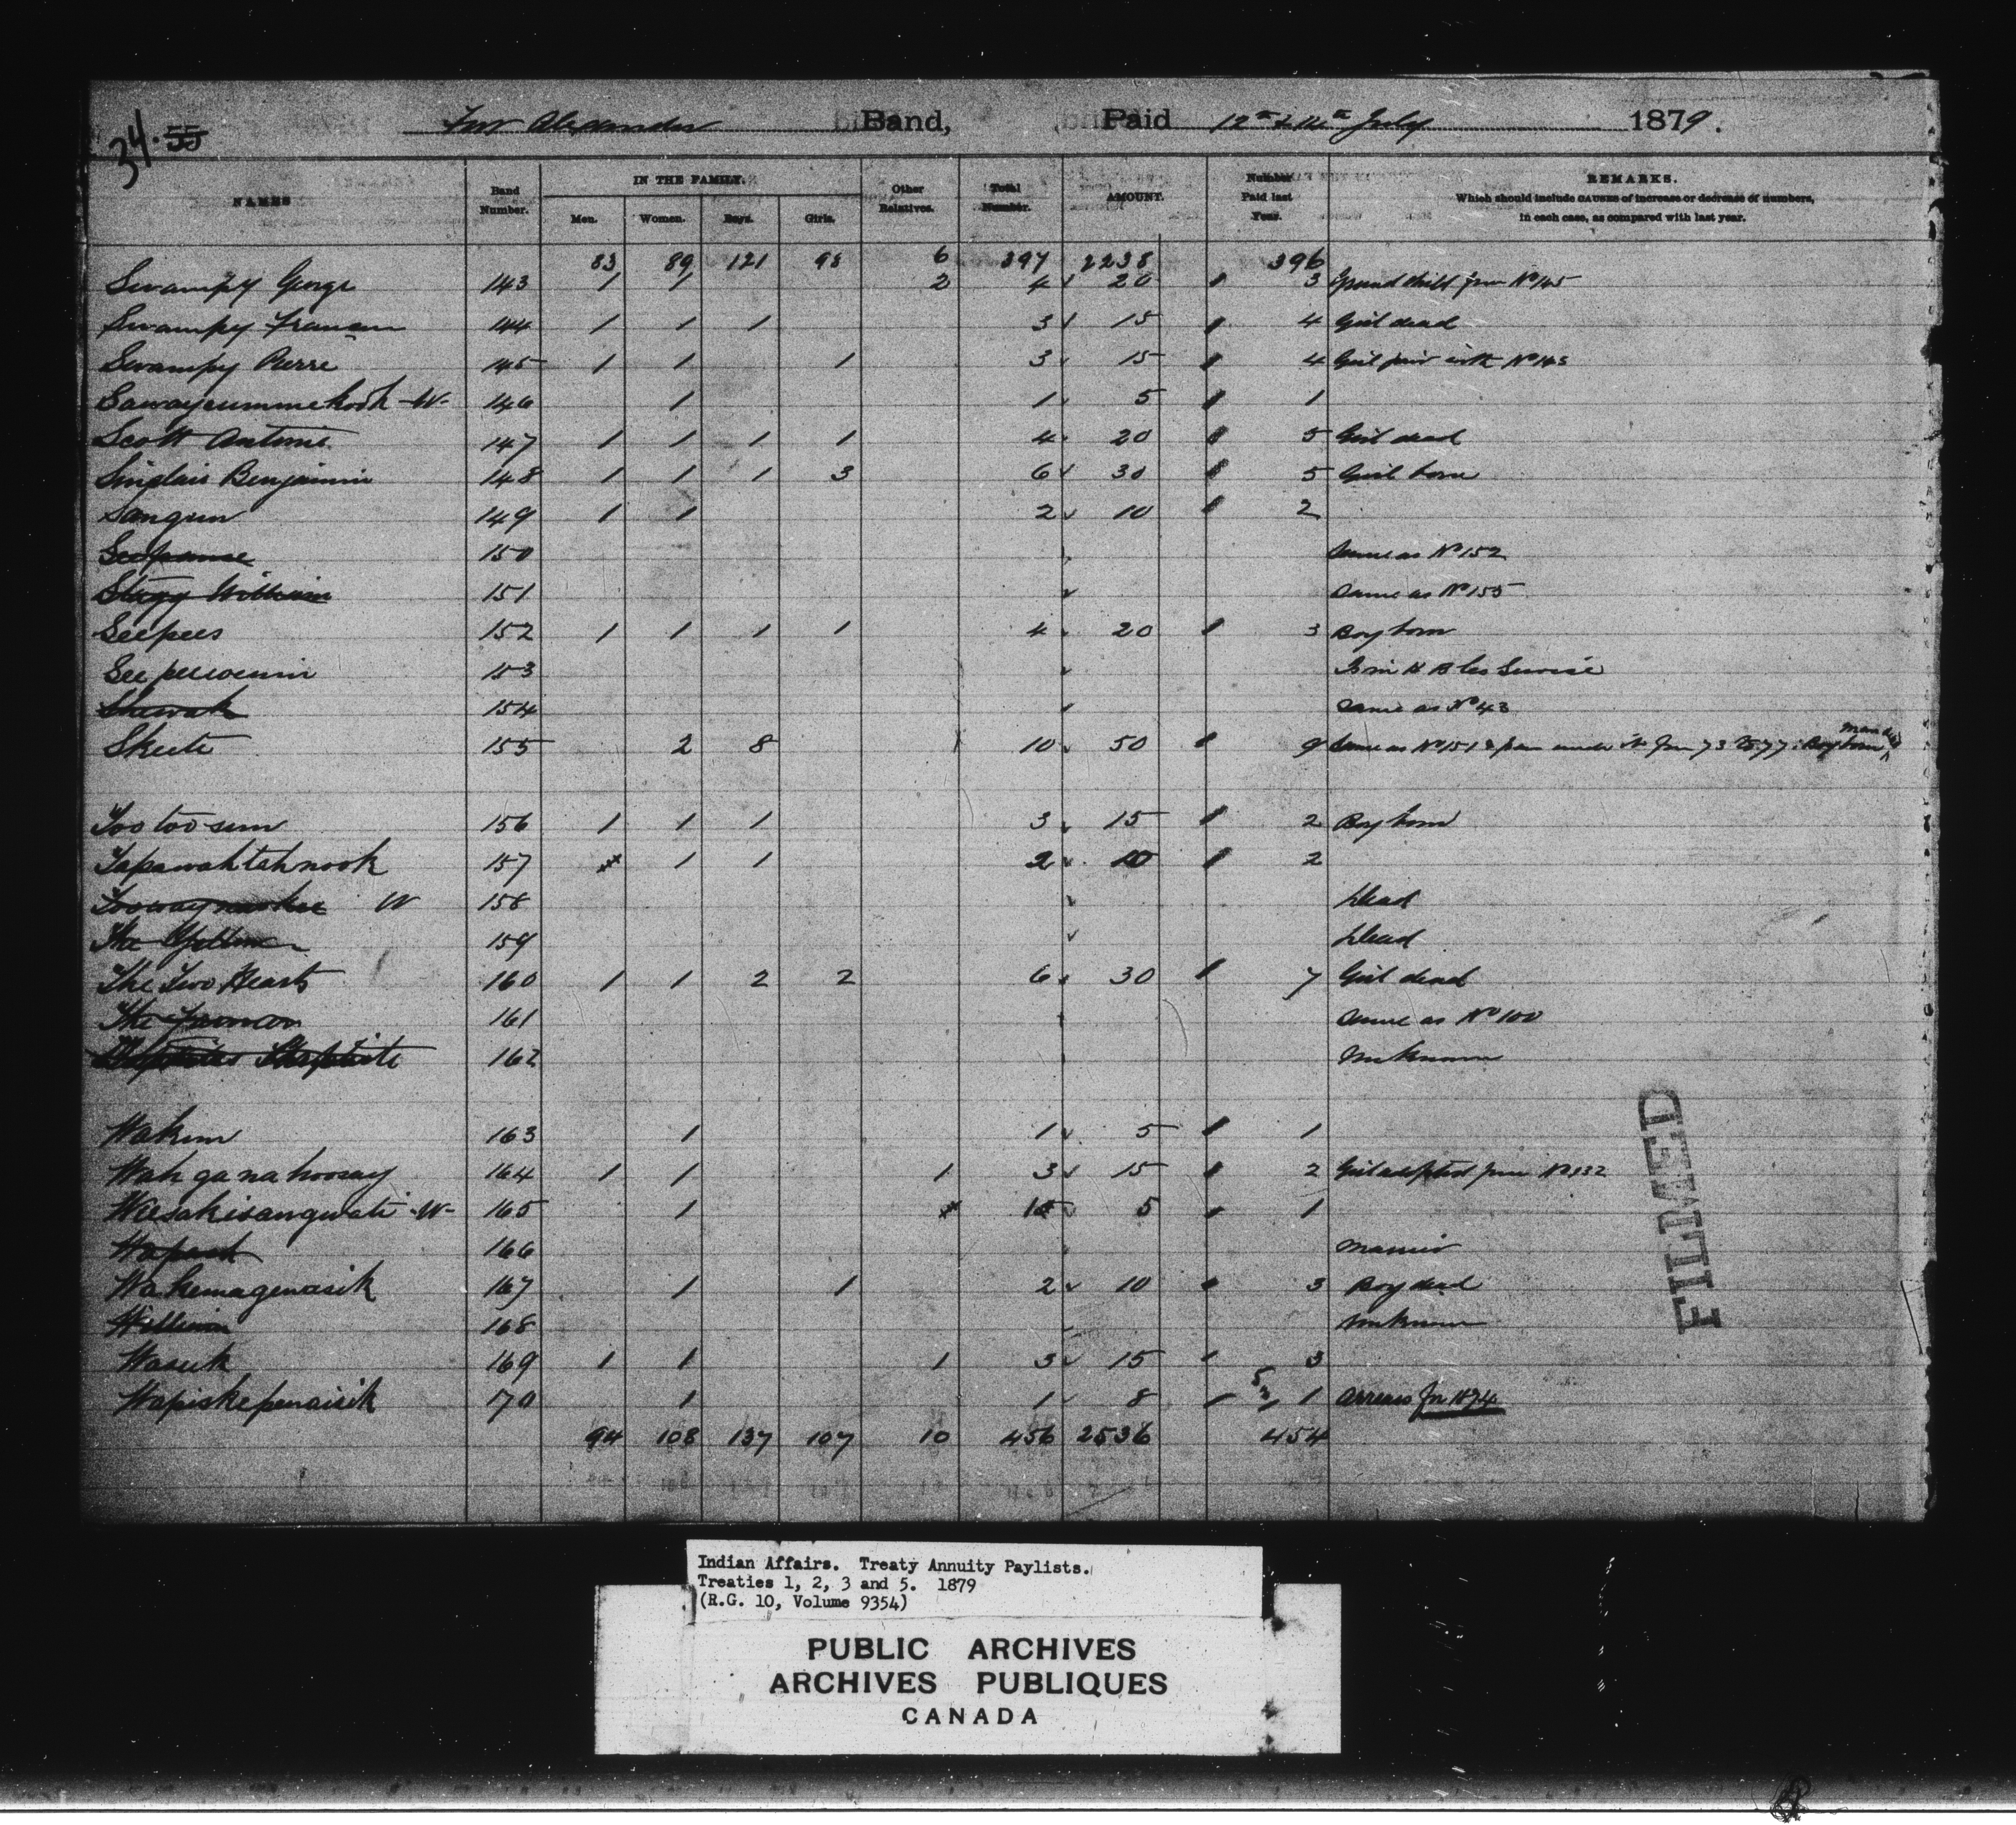 34. 55
Fort Alexander Band, Paid 12th & 14th July 1879.
NAMES Band Number. IN THE FAMILY. Men. Women. Boys. Girls. Other Relatives. Total Number. AMOUNT. Number Paid last Year. REMARKS. Which should include CAUSES of increase or decrease of numbers, in each case, as compared with last year.
83 89 121 98 6 397 2238 396
Swampy George 143 1 1 2 4 20 3 Grand child from No 145
Swampy 144 1 1 1 3 15 4 Girl dead
Swampy Pierre 145 1 1 1 3 15 4 Girl paid with No 143
146 1 1 5 1
Scott Antoine 147 1 1 1 1 4 20 5 Girl dead
Sinclair Benjamin 148 1 1 1 3 6 30 5 Girl born
149 1 1 2 10 2
150 Same as No 152
Stagg William 151 Same as No 155
Seepees 152 1 1 1 1 4 20 3 Boy born
153
154 Same as No 43
Skeete 155 2 8 10 50 9 Same as No 151 & paid under it from 73 to 77: Boy born man dead
156 1 1 1 3 15 2 Boy born
Tapawahtahnook 157 1 1 2 10 2
W 158 Dead
159 Dead
The Two Hearts 160 1 1 2 2 6 30 7 Girl dead
161 Same as No 100
162 Unknown
163 1 1 5 1
Wah ga na hoosay 164 1 1 1 3 15 2 Girl adopted from No 132
Weesakisangwate -W- 165 1 1 5 1
166
Wakemagewasik 167 1 1 2 10 3 Boy dead
William 168 Unknown
Waseek 169 1 1 1 3 15 3
Wapiskepenaisik 170 1 1 8 1 Arrears for 1874
94 108 137 107 10 456 2536 454
FILMED
Indian Affairs. Treaty Annuity Paylists.
Treaties 1, 2, 3 and 5. 1879
(R.G. 10, Volume 9354)
PUBLIC ARCHIVES
ARCHIVES PUBLIQUES
CANADA